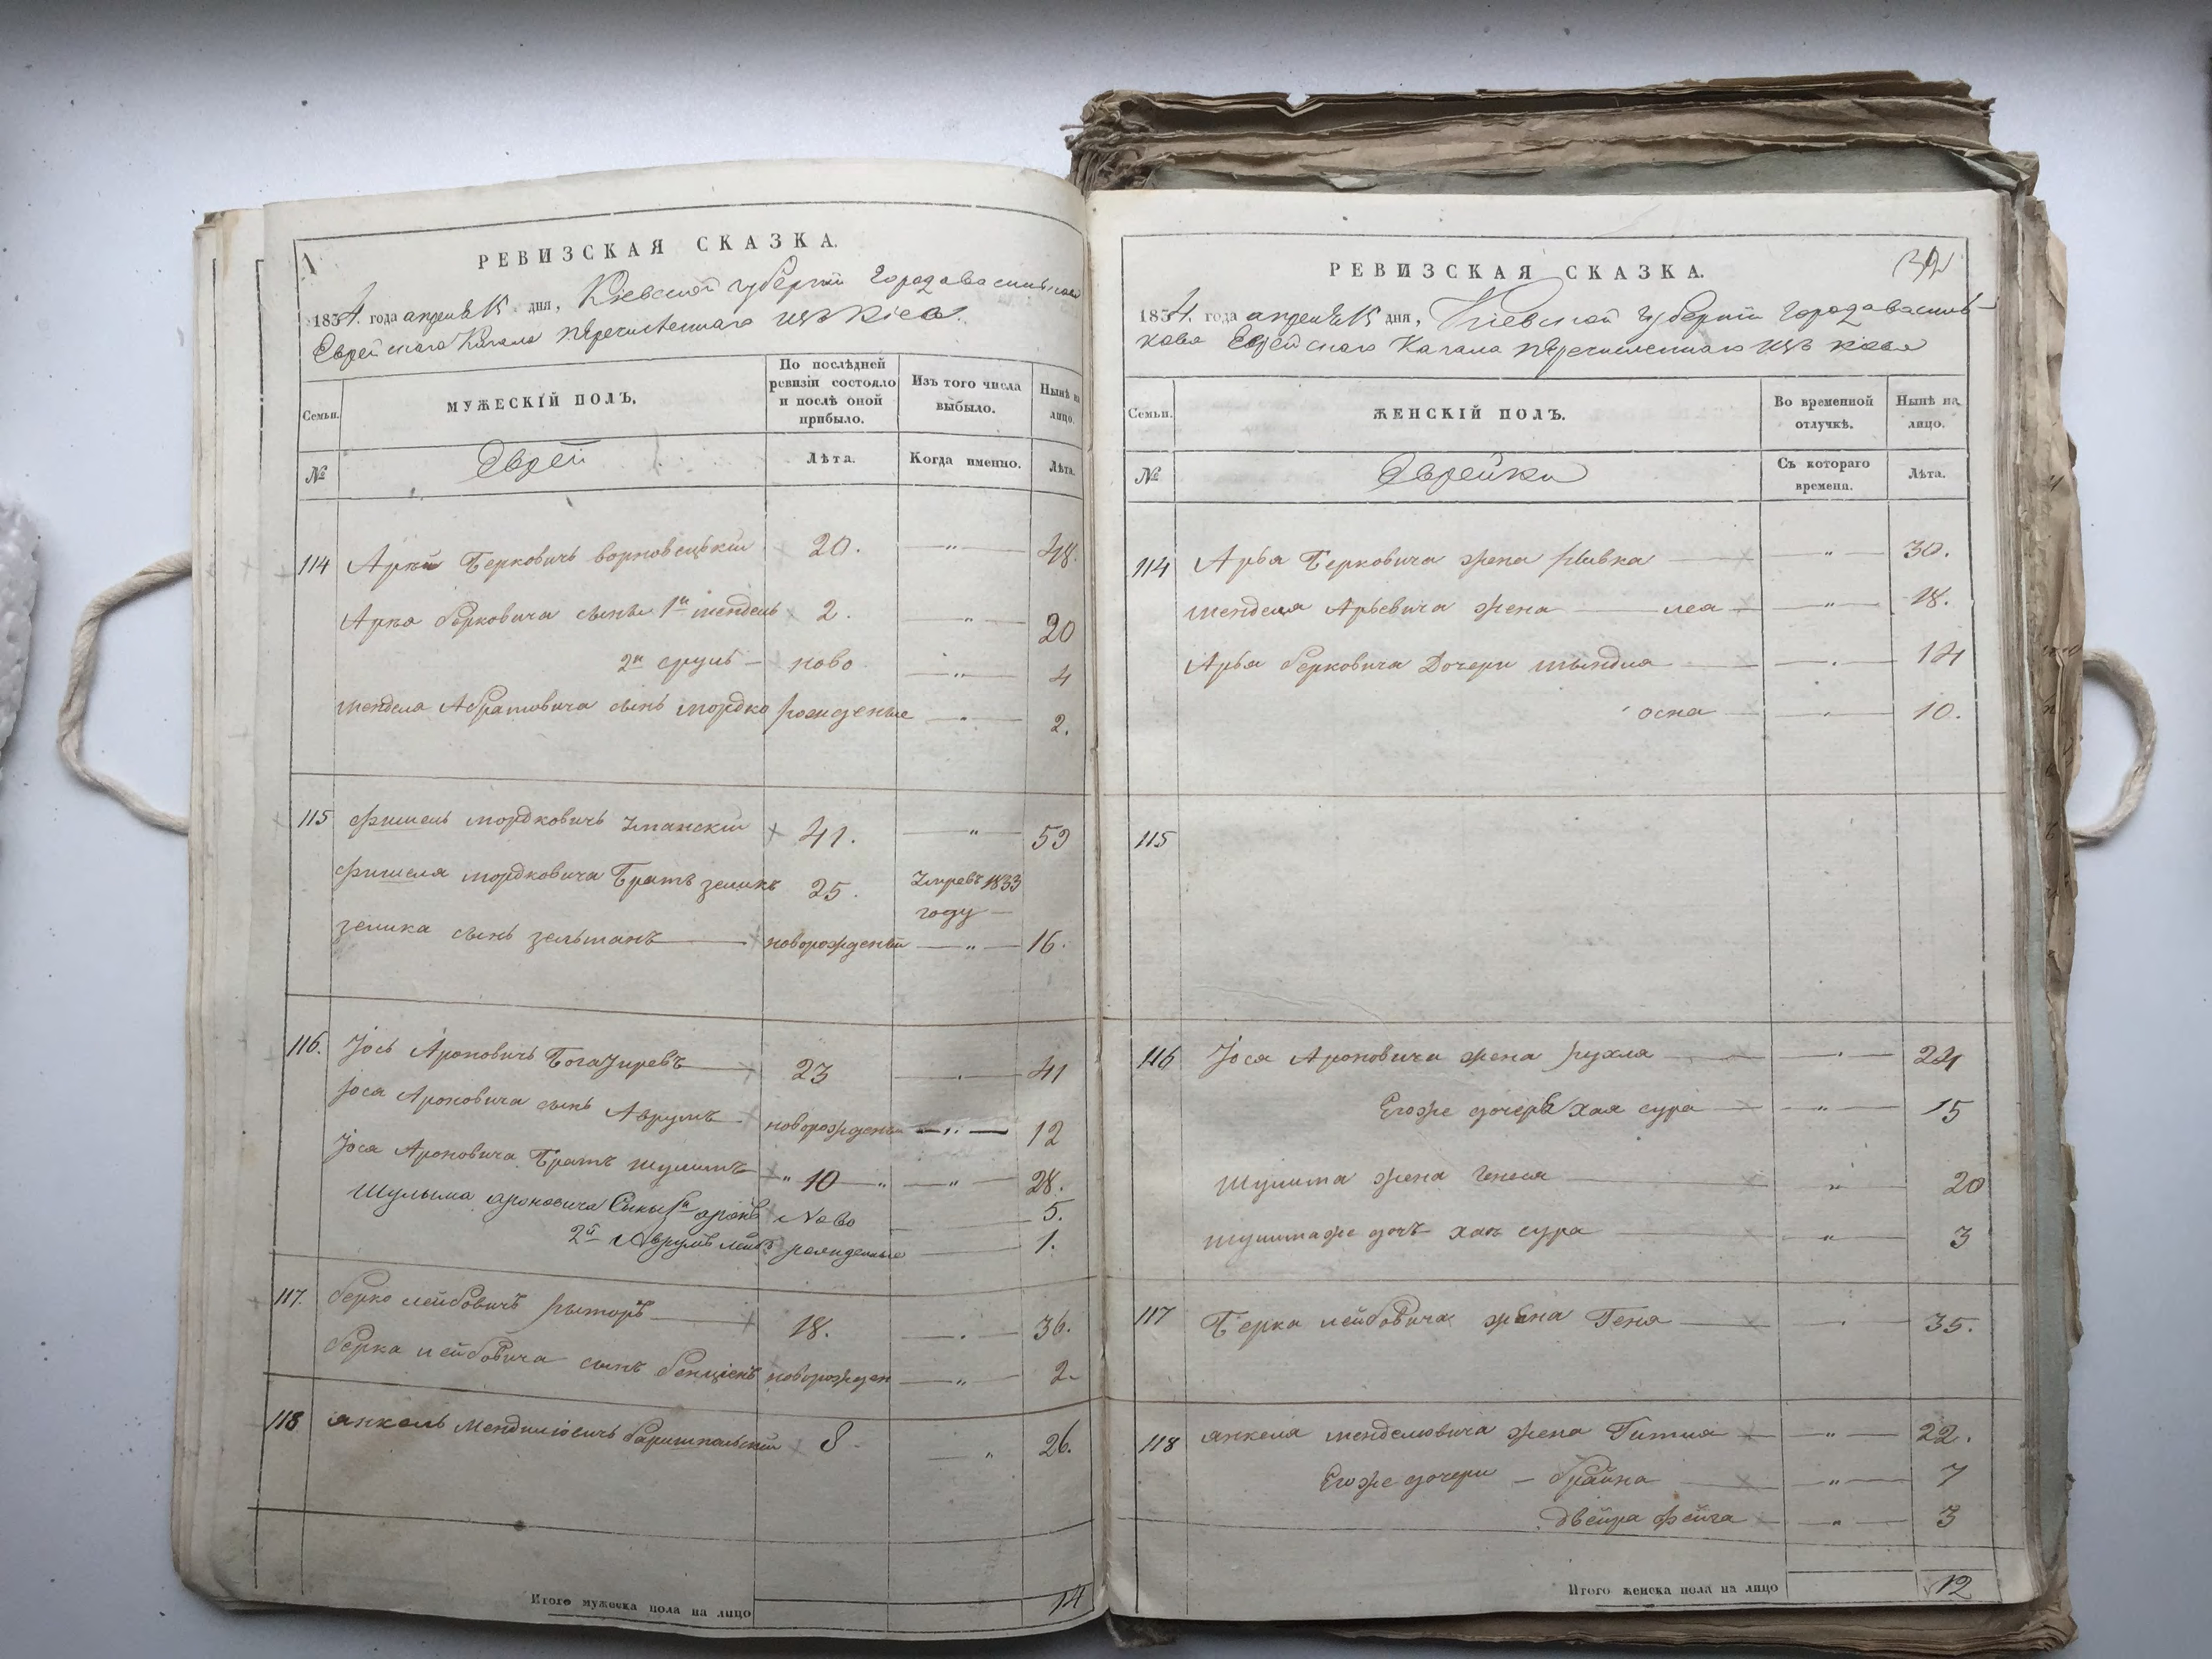 РЕВИЗСКАЯ СКАЗКА.
1834. года апреля 15 дня, Кіевской губерніи города василькова
Еврейского Кагала перечисленнаго изъ Кіева.
Семьи. МУЖЕСКІЙ ПОЛЪ. По послѣдней ревизіи состояло и послѣ оной прибыло. Изъ того числа выбыло. Нынѣ на лицо.
№ Еврей Лѣта. Когда именно. Лѣта.
114 Арій Берковичь 20. — " — 48.
Арья Берковича сынья 1й мендель 2. — " — 20
2й сруль — ново — " — 4
менделя Абрамовича сынъ мордко рожденые — " — 2.
115 фишель мордковичь Уманскій 41. — " — 59
фишеля мордковича Братъ зеликъ 25. Умревъ 1833 году —
зелика сынъ зельманъ — новорожденый — " — 16.
116. Іось Ароновичь Богазыревъ — 23 — " — 41
Іося Ароновича сынъ Аврумъ — новорожденый — " — 12
Іося Ароновича Братъ шулимъ — " 10 — " — " — 28.
Шулыма ароновича Сыны 1й аронъ Ново — 5.
2й Аврумъ лейба рожденные — 1.
117. берко лейбовичъ рыморъ — 18. — " — 36.
берка лейбовича сынъ бенціенъ новорожден — " — 2.
118 янкель Менделіовичь баришпольскій 8. — " 26.
Итого мужеска пола на лицо 14
РЕВИЗСКАЯ СКАЗКА.
1834. года апреля 15 дня, Кіевской губерніи города василь-
кова Еврейскаго Кагала перечисленнаго изъ кіева
Семьи. ЖЕНСКІЙ ПОЛЪ. Во временной отлучкѣ. Нынѣ на лицо.
№ Еврейки Съ котораго времени. Лѣта.
114 Арья Берковича жена ривка — " — 30.
менделя Арьевича жена — леа — " — 18.
Арья берковича Дочери шындля — " — 14
осна — " — 10.
115
116 Іося Ароновича жена рухля — " — 24
Егоже дочерь хая сура — " — 15
шулима жена генеся — " 20
шулимаже дочъ хая сура — " — 3
117 Берка лейбовича жена Геня — " — 35.
118 янкеля менделювича жена Гитля — " — 22.
Егоже дочери — брайна — " — 7
двейра фейга — " — 3
Итого женска пола на лицо 12